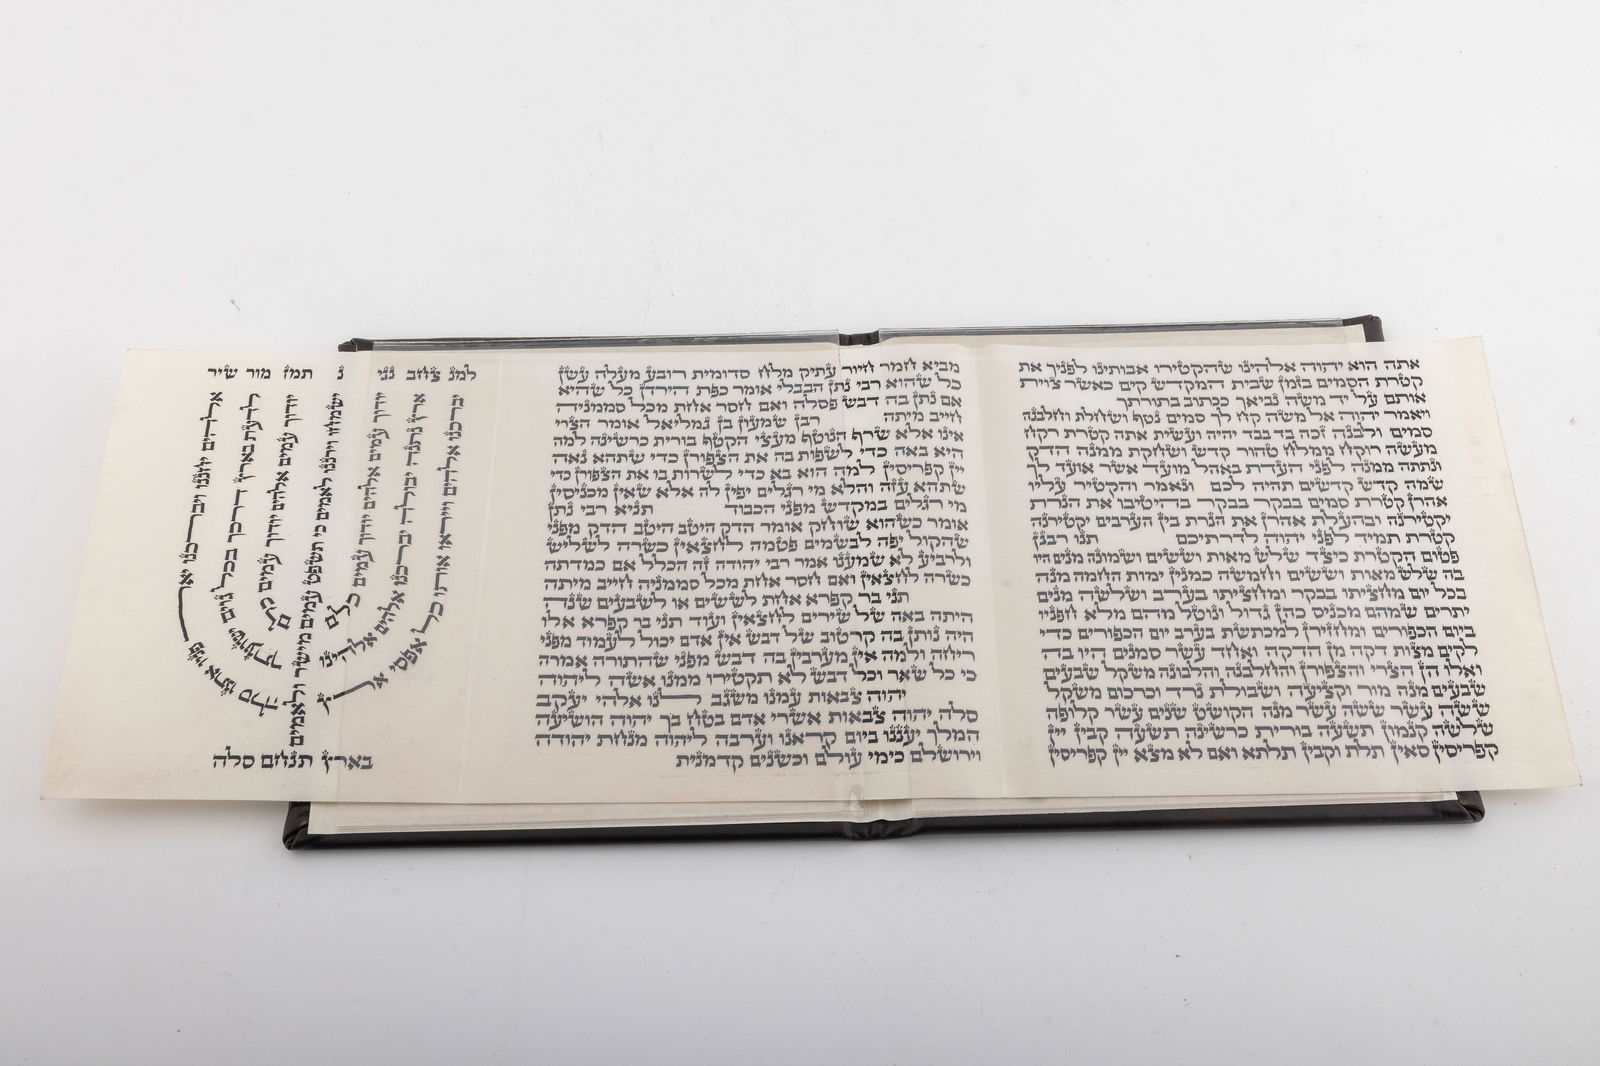 אתה הוא יהוה אלהינו שהקטירו אבותינו לפניך את
קטרת הסמים בזמן שבית המקדש קים כאשר צוית
אותם על יד משה נביאך ככתוב בתורתך
ויאמר יהוה אל משה קח לך סמים נטף ושחלת וחלבנה
סמים ולבנה זכה בד בבד יהיה ועשית אתה קטרת רקח
מעשה רוקח ממלח טהור קדש ושחקת ממנה הדק
ונתתה ממנה לפני העדת באהל מועד אשר אועד לך
שמה קדש קדשים תהיה לכם ונאמר והקטיר עליו
אהרן קטרת סמים בבקר בבקר בהיטיבו את הנרת
יקטירנה ובהעלת אהרן את הנרת בין הערבים יקטירנה
קטרת תמיד לפני יהוה לדרתיכם תנו רבנן
פטום הקטרת כיצד שלש מאות וששים ושמונה מנים היו
בה שלש מאות וששים וחמשה כמנין ימות החמה מנה
בכל יום מחציתו בבקר ומחציתו בערב ושלשה מנים
יתרים שמהם מכניס כהן גדול ונוטל מהם מלא חפניו
ביום הכפורים ומחזירן למכתשת בערב יום הכפורים כדי
לקים מצות דקה מן הדקה ואחד עשר סמנים היו בה
ואלו הן הצרי והצפורן והחלבנה והלבונה משקל שבעים
שבעים מנה מור וקציעה ושבולת נרד וכרכום משקל
ששה עשר ששה עשר מנה הקושט שנים עשר קלופה
שלשה קנמון תשעה בורית כרשינה תשעה קבין יין
קפריסין סאין תלת וקבין תלתא ואם לא מצא יין קפריסין
מביא חמר חיור עתיק מלח סדומית רובע מעלה עשן
כל שהוא רבי נתן הבבלי אומר כפת הירדן כל שהיא
אם נתן בה דבש פסלה ואם חסר אחת מכל סממניה
חייב מיתה רבן שמעון בן גמליאל אומר הצרי
אינו אלא שרף הנוטף מעצי הקטף בורית כרשינה למה
היא באה כדי לשפות בה את הצפורן כדי שתהא נאה
יין קפריסין למה הוא בא כדי לשרות בו את הצפורן כדי
שתהא עזה והלא מי רגלים יפין לה אלא שאין מכניסין
מי רגלים במקדש מפני הכבוד תניא רבי נתן
אומר כשהוא שוחק אומר הדק היטב היטב הדק מפני
שהקול יפה לבשמים פטמה לחצאין כשרה לשליש
ולרביע לא שמענו אמר רבי יהודה זה הכלל אם כמדתה
כשרה לחצאין ואם חסר אחת מכל סממניה חייב מיתה
תני בר קפרא אחת לששים או לשבעים שנה
היתה באה של שירים לחצאין ועוד תני בר קפרא אלו
היה נותן בה קרטוב של דבש אין אדם יכול לעמוד מפני
ריחה ולמה אין מערבין בה דבש מפני שהתורה אמרה
כי כל שאר וכל דבש לא תקטירו ממנו אשה ליהוה
יהוה צבאות עמנו משגב לנו אלהי יעקב
סלה יהוה צבאות אשרי אדם בטח בך יהוה הושיעה
המלך יעננו ביום קראנו וערבה ליהוה מנחת יהודה
וירושלם כימי עולם וכשנים קדמנית
למנ צחב נגי נ תמז מור שיר
אלהים יחננו ויברכנו יאר פניו אתנו סלה
לדעת בארץ דרכך בכל גוים ישועתך
יודוך עמים אלהים יודוך עמים כלם
ישמחו וירננו לאמים כי תשפט עמים מישר ולאמים
בארץ תנחם סלה
יודוך עמים אלהים יודוך עמים כלם
ארץ נתנה יבולה יברכנו אלהים אלהינו
יברכנו אלהים וייראו אותו כל אפסי ארץ